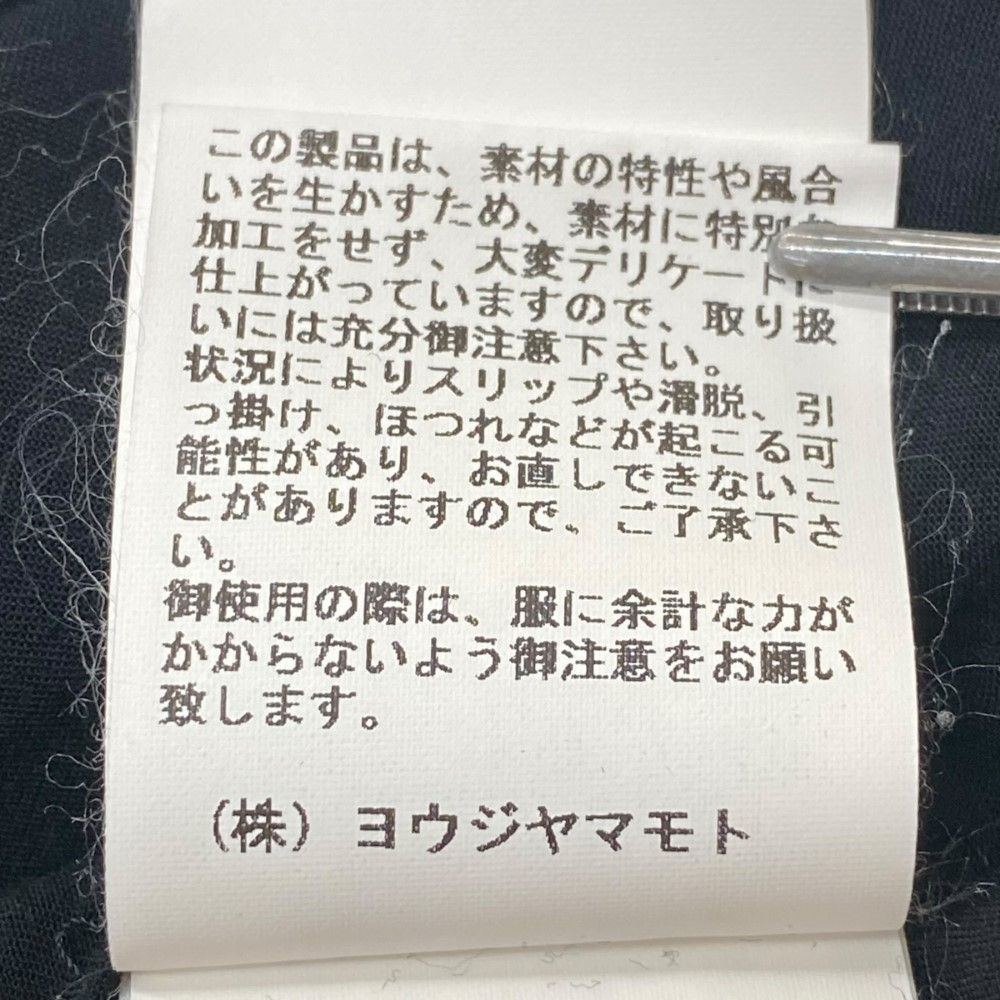 この製品は、素材の特性や風合
いを生かすため、素材に特別な
加工をせず、大変デリケートに
仕上がっていますので、取り扱
いには充分御注意下さい。
状況によりスリップや滑脱、引
っ掛け、ほつれなどが起こる可
能性があり、お直しできないこ
とがありますので、ご了承下さ
い。
御使用の際は、服に余計な力が
かからないよう御注意をお願い
致します。
（株）ヨウジヤマモト